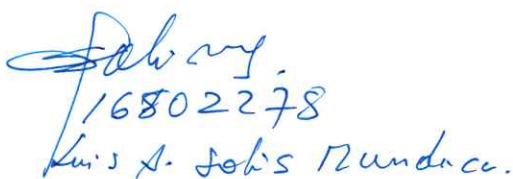 16802278
Luis A. Solis Mundaca.